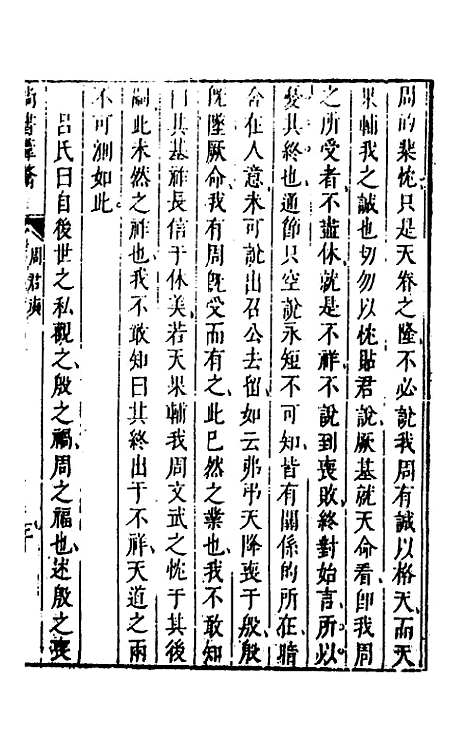 周的棐忱只是天眷之隆不必說我周有誠以格天而天
果輔我之誠也切勿以忱貼君說厥基就天命看卽我周
之所受者不盡休就是不祥不說到喪敗終對始言所以
憂其終也通節只空說永短不可知皆有關係的所在暗
含在人意未可說出召公去留如云弗弔天降喪于殷殷
旣墜厥命我有周旣受而有之此已然之業也我不敢知
曰其基祥長信于休美若天果輔我周文武之忱于其後
嗣此未然之祥也我不敢知曰其終出于不祥天道之兩
不可測如此
呂氏曰自後世之私觀之殷之禍周之福也述殷之喪
尚書葦籥
周君奭